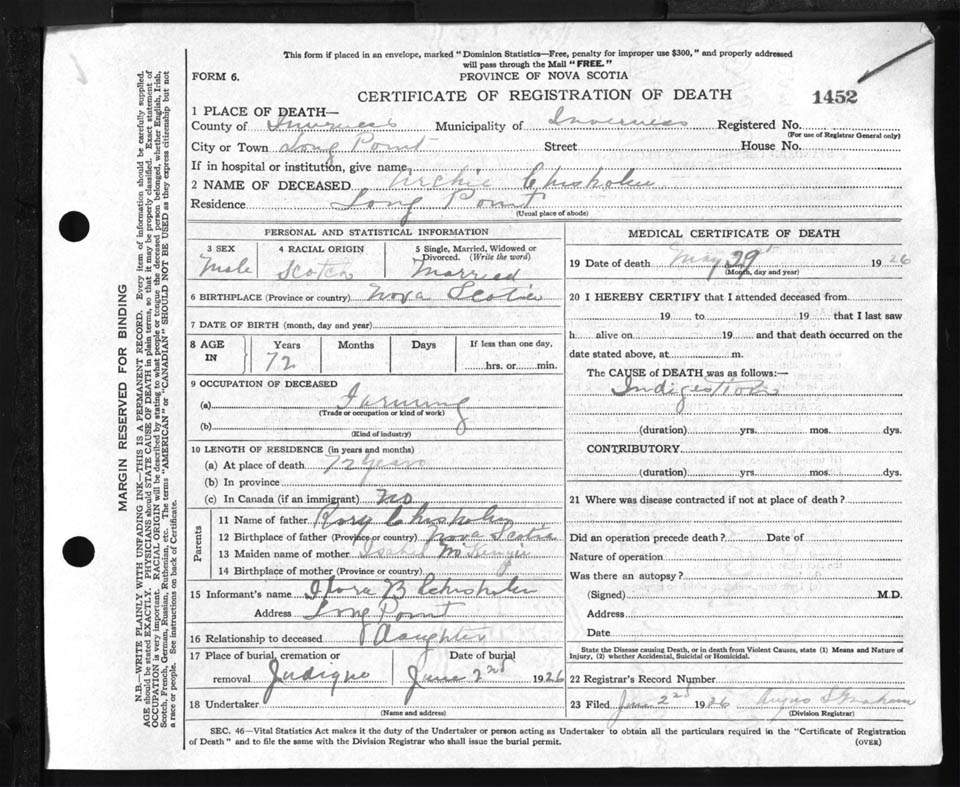 This form if placed in an envelope, marked "Dominion Statistics—Free, penalty for improper use $300," and properly addressed
will pass through the Mail "FREE."
FORM 6.
PROVINCE OF NOVA SCOTIA
CERTIFICATE OF REGISTRATION OF DEATH
1452
1 PLACE OF DEATH—
County of Inverness Municipality of Inverness Registered No.
(For use of Registrar General only)
City or Town Long Point Street House No.
If in hospital or institution, give name
2 NAME OF DECEASED Archie Chisholm
Residence Long Point
(Usual place of abode)
PERSONAL AND STATISTICAL INFORMATION
3 SEX 4 RACIAL ORIGIN 5 Single, Married, Widowed or
Divorced. (Write the word)
Male Scotch Married
6 BIRTHPLACE (Province or country) Nova Scotia
7 DATE OF BIRTH (month, day and year)
8 AGE IN Years Months Days If less than one day,
72 hrs. or min.
9 OCCUPATION OF DECEASED
(a) Farming
(Trade or occupation or kind of work)
(b)
(Kind of industry)
10 LENGTH OF RESIDENCE (in years and months)
(a) At place of death 72 years
(b) In province
(c) In Canada (if an immigrant) No
Parents
11 Name of father Rory Chisholm
12 Birthplace of father (Province or country) Nova Scotia
13 Maiden name of mother Isabel
14 Birthplace of mother (Province or country)
15 Informant's name Flora B Chisholm
Address Long Point
16 Relationship to deceased Daughter
17 Place of burial, cremation or Date of burial
removal Judique June 2nd 1926
18 Undertaker
(Name and address)
MEDICAL CERTIFICATE OF DEATH
19 Date of death May 29 1926
(Month, day and year)
20 I HEREBY CERTIFY that I attended deceased from
19 to 19 that I last saw
h alive on 19 and that death occurred on the
date stated above, at m.
The CAUSE of DEATH was as follows:—
Indigestion
(duration) yrs. mos. dys.
CONTRIBUTORY
(duration) yrs. mos. dys.
21 Where was disease contracted if not at place of death?
Did an operation precede death? Date of
Nature of operation
Was there an autopsy?
(Signed) M.D.
Address
Date
State the Disease causing Death, or in death from Violent Causes, state (1) Means and Nature of
Injury, (2) whether Accidental, Suicidal or Homicidal.
22 Registrar's Record Number
23 Filed June 2nd 1926 Angus Graham
(Division Registrar)
SEC. 46—Vital Statistics Act makes it the duty of the Undertaker or person acting as Undertaker to obtain all the particulars required in the "Certificate of Registration
of Death" and to file the same with the Division Registrar who shall issue the burial permit.
(OVER)
MARGIN RESERVED FOR BINDING
N.B.—WRITE PLAINLY WITH UNFADING INK—THIS IS A PERMANENT RECORD. Every item of information should be carefully supplied.
AGE should be stated EXACTLY. PHYSICIANS should STATE CAUSE OF DEATH in plain terms, so that it may be properly classified. Exact statement of
OCCUPATION is very important. RACIAL ORIGIN will be described by stating to what people or tongue the deceased person belonged, whether English, Irish,
Scotch, French, German, Russian, Ruthenian, etc. The terms "AMERICAN" or "CANADIAN" SHOULD NOT BE USED as they express citizenship but not
a race or people. See instructions on back of Certificate.